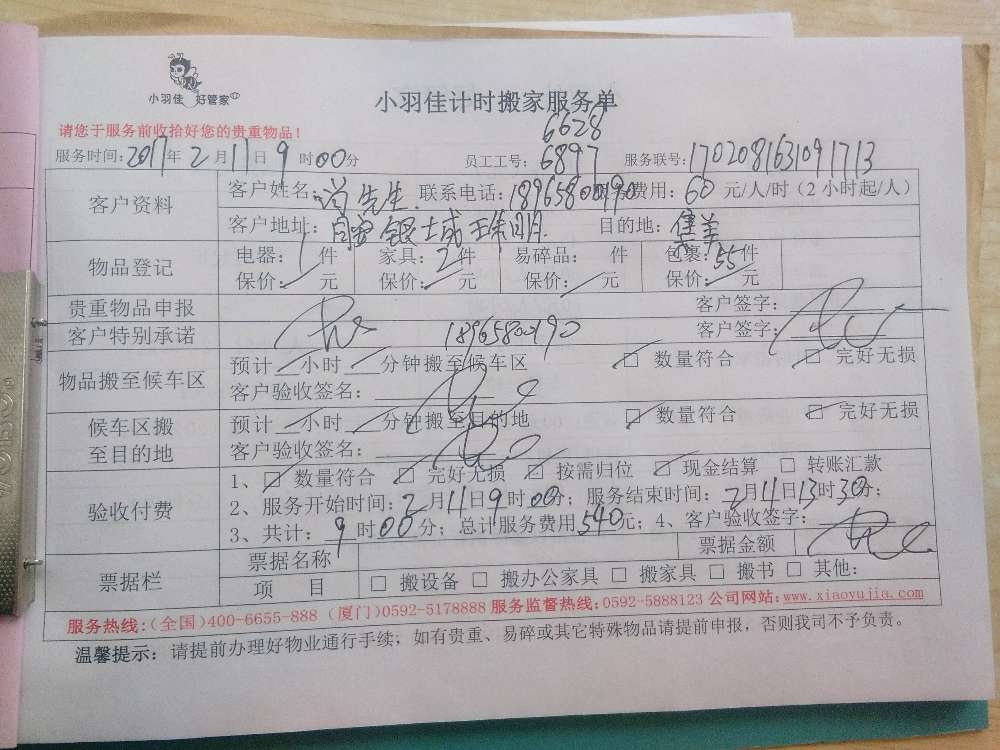 小羽佳 好管家
小羽佳计时搬家服务单
请您于服务前收拾好您的贵重物品！
6628
服务时间：2017年2月11日9时00分 员工工号：6897 服务联号：1702081631091713
客户资料 客户姓名： 先生 联系电话：18965800190 费用：60元/人/时（2小时起/人）
客户地址： 银城 目的地：集美
物品登记 电器：1件 家具：2件 易碎品： 件 包裹：55件
保价： 元 保价： 元 保价： 元 保价： 元
贵重物品申报 客户签字：
客户特别承诺 18965800190 客户签字：
物品搬至候车区 预计 小时 分钟搬至候车区 □ 数量符合 □ 完好无损
客户验收签名：
候车区搬至目的地 预计 小时 分钟搬至目的地 □ 数量符合 □ 完好无损
客户验收签名：
验收付费 1、□ 数量符合 □ 完好无损 □ 按需归位 □ 现金结算 □ 转账汇款
2、服务开始时间：2月11日9时00分；服务结束时间：2月11日13时30分；
3、共计：9时00分；总计服务费用540元；4、客户验收签字：
票据栏 票据名称 票据金额
项 目 □ 搬设备 □ 搬办公家具 □ 搬家具 □ 搬书 □ 其他：
服务热线：（全国）400-6655-888（厦门）0592-5178888 服务监督热线：0592-5888123 公司网站：www.xiaoyujia.com
温馨提示：请提前办理好物业通行手续；如有贵重、易碎或其它特殊物品请提前申报，否则我司不予负责。